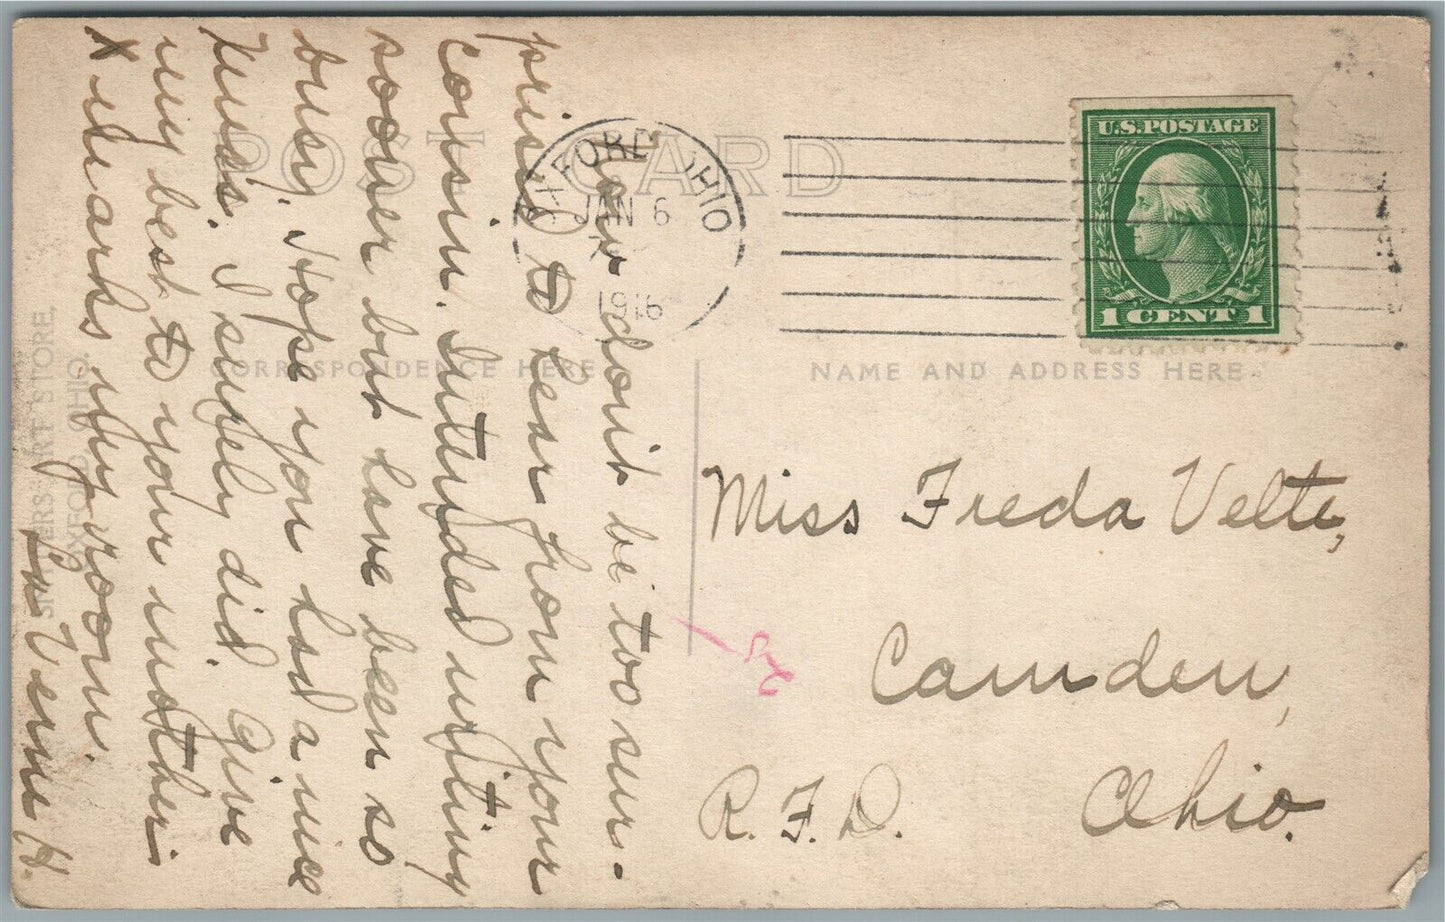 POST CARD
OXFORD OHIO
JAN 6
1916
U.S. POSTAGE
1 CENT 1
CORRESPONDENCE HERE
NAME AND ADDRESS HERE
Now don't be too sur-
prised to hear from your
cousin. Intended writing
sooner but have been so
busy. Hope you had a nice
Xmas. I surely did. Give
my best to your mother
X marks my room.
La Verne H.
Miss Freda Velte,
Camden,
R.F.D. Ohio.
ART STORE,
OXFORD, OHIO.